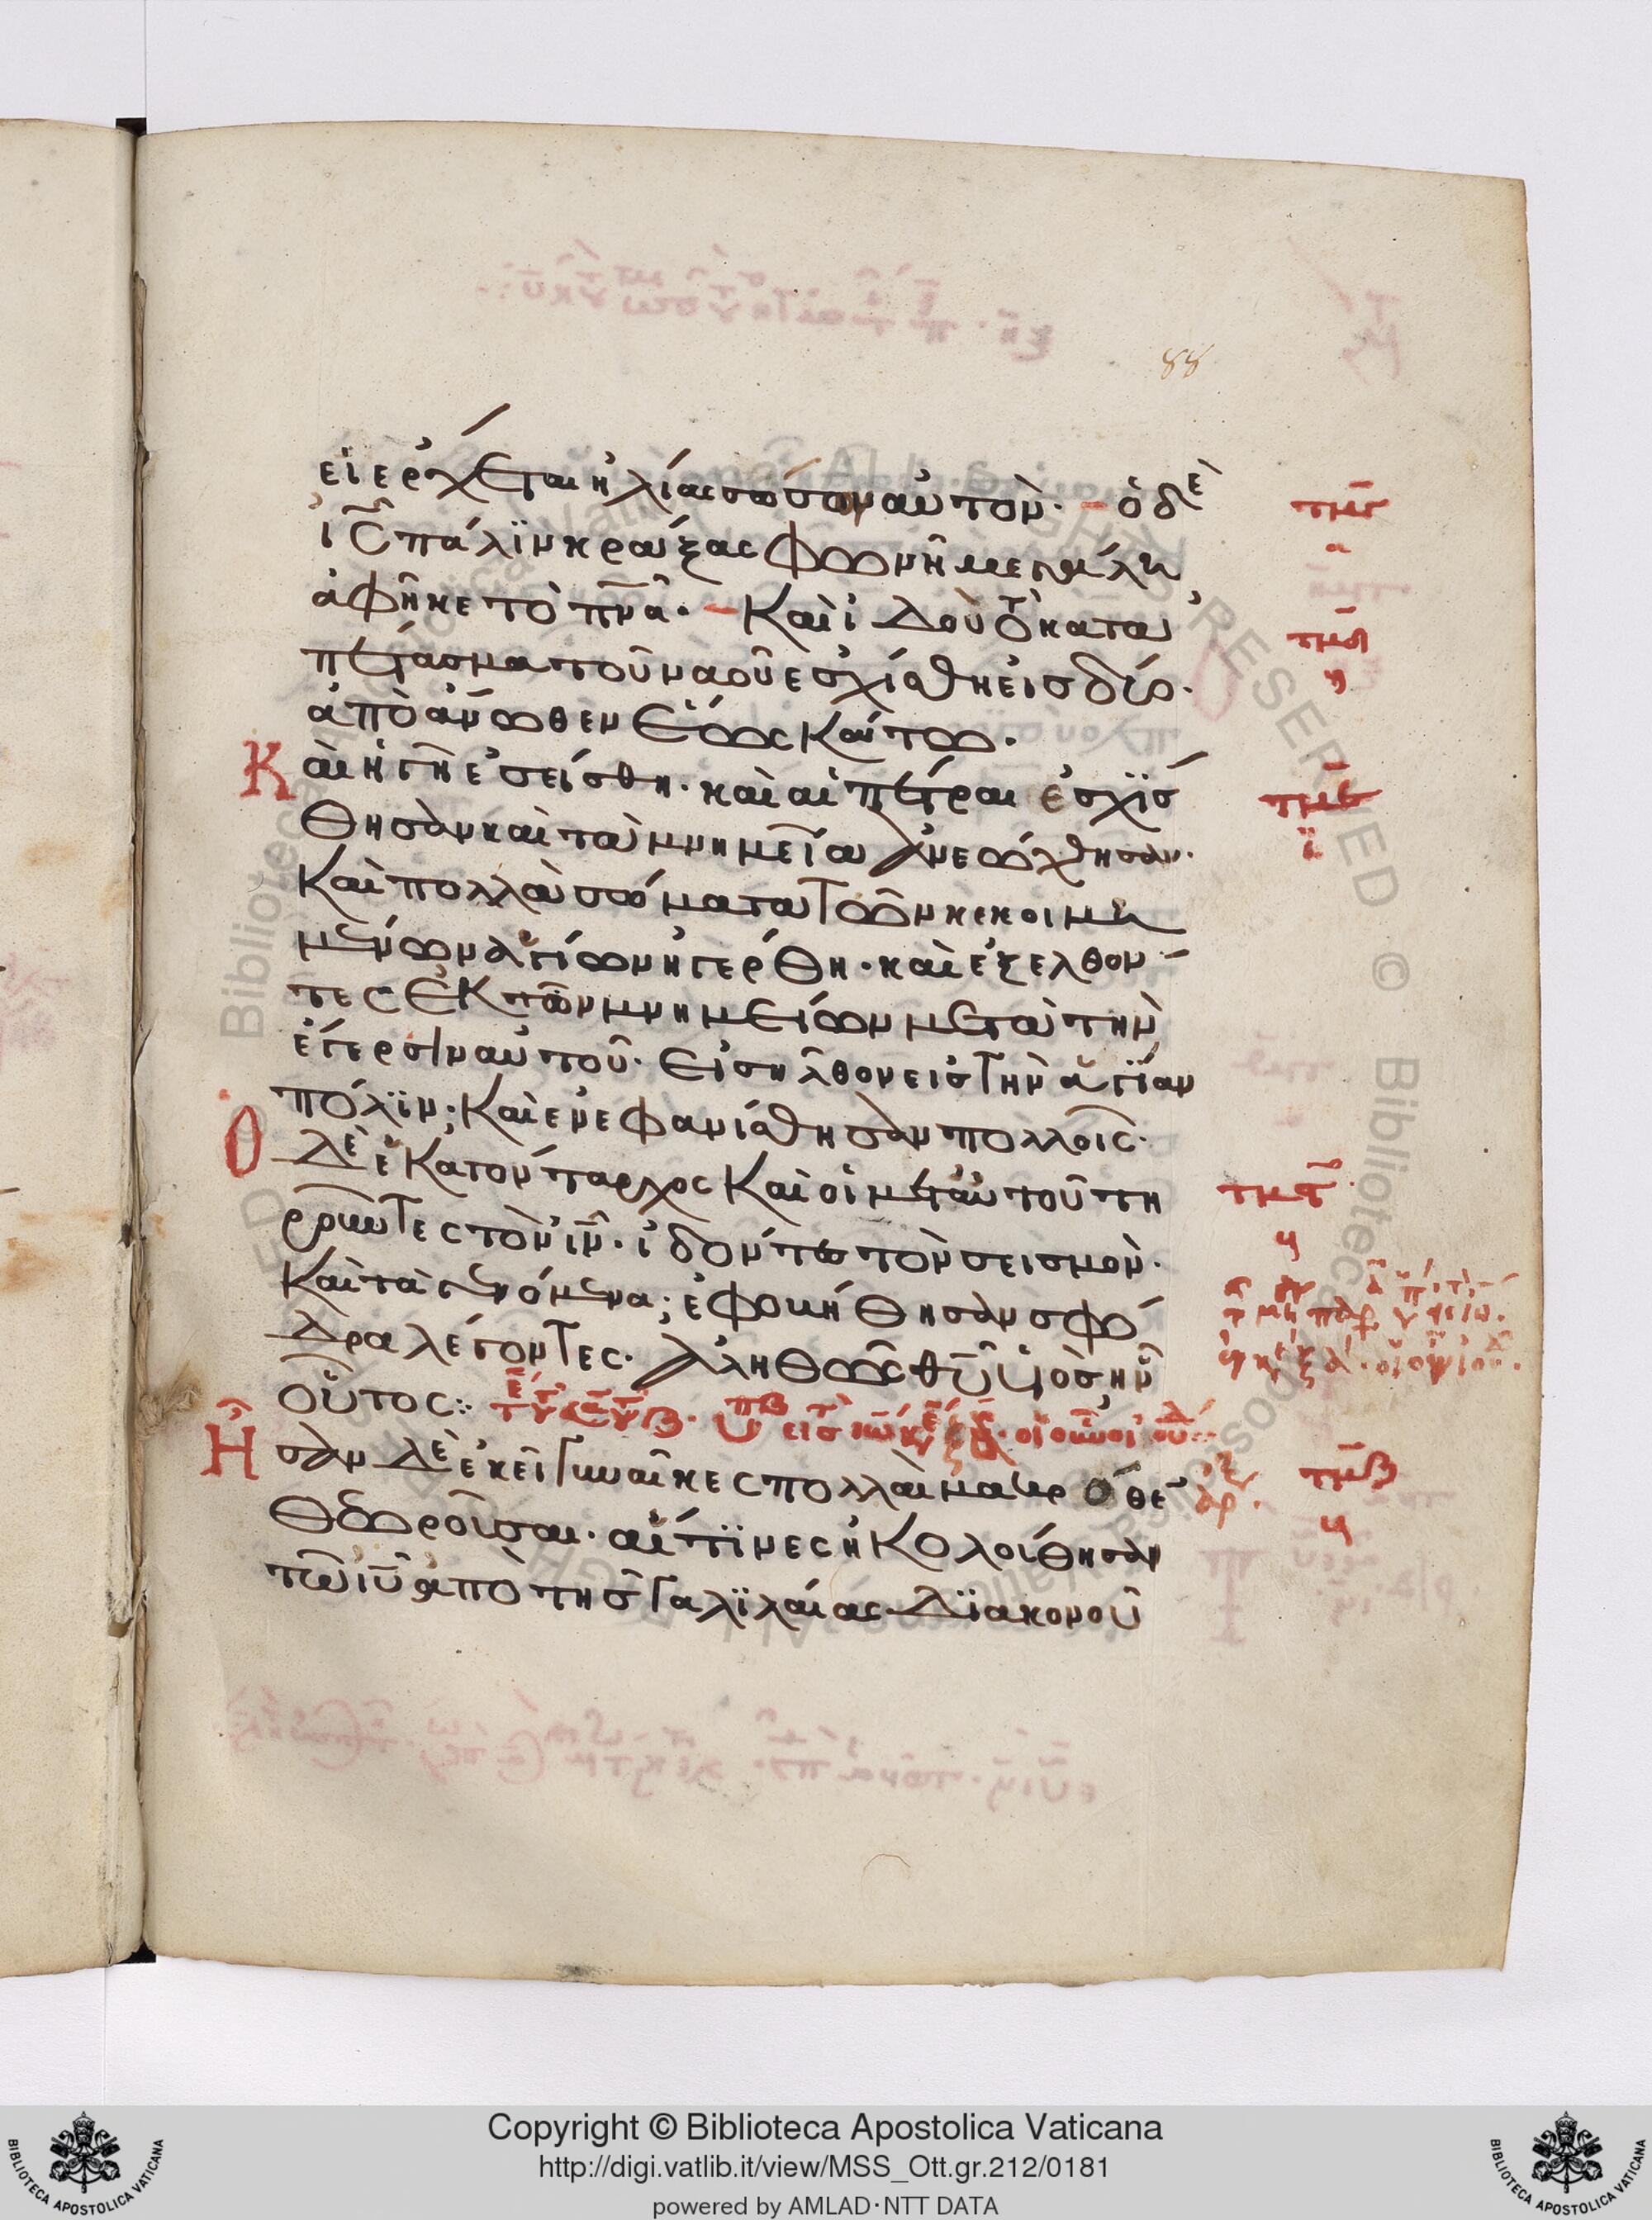 88
εἰ ἔρχεται ἠλίας σώσων αὐτόν· ὁ δὲ
ι̅ς̅ πάλϊν κράξας φωνῆ μεγάλη
ἀφῆκε τὸ πν̅α̅· Καὶ ἰδοὺ τὸ κατα
πέτασμα τοῦ ναοῦ ἐσχίσθη εἰς δύο·
ἀπὸ ἄνωθεν ἕως κάτω·
Καὶ ἡ γῆ ἐσείσθη· καὶ αἱ πέτραι ἐσχίσ
θησαν καὶ τὰ μνημεῖα ἀνεώχθησαν·
Καὶ πολλὰ σώματα τῶν κεκοιμη
μένων ἁγίων ἠγέρθη· καὶ ἐξελθόν
τες ἐκ τῶν μνημείων μετὰ τὴν
ἔγερσιν αὐτοῦ· εἰσῆλθον εἰς τὴν ἁγίαν
πόλϊν· Καὶ ἐνεφανίσθησαν πολλοῖς·
Ὁ δὲ ἑκατόνταρχος Καὶ οἱ μετ' αὐτοῦ τη
ροῦντες τὸν ι̅ν̅· ἰδόντες τὸν σεισμὸν·
Καὶ τὰ γενόμενα· ἐφοβήθησαν σφό
δρα λέγοντες· ἀληθῶς θ̅υ̅ υἱὸς ἦν
οὗτος:
Ἦσαν δὲ ἐκεῖ γυναῖκες πολλαὶ μακρόθε
θεωροῦσαι· αἵτϊνες ἠκολούθησαν
τῶ ι̅υ̅ ἀπὸ τῆς Γαλϊλαίας διακονοῦ
τμγ
α
τμδ
τμε
ι
τμα
τμβ
Copyright © Biblioteca Apostolica Vaticana
http://digi.vatlib.it/view/MSS_Ott.gr.212/0181
powered by AMLAD·NTT DATA
BIBLIOTECA APOSTOLICA VATICANA
BIBLIOTECA APOSTOLICA VATICANA